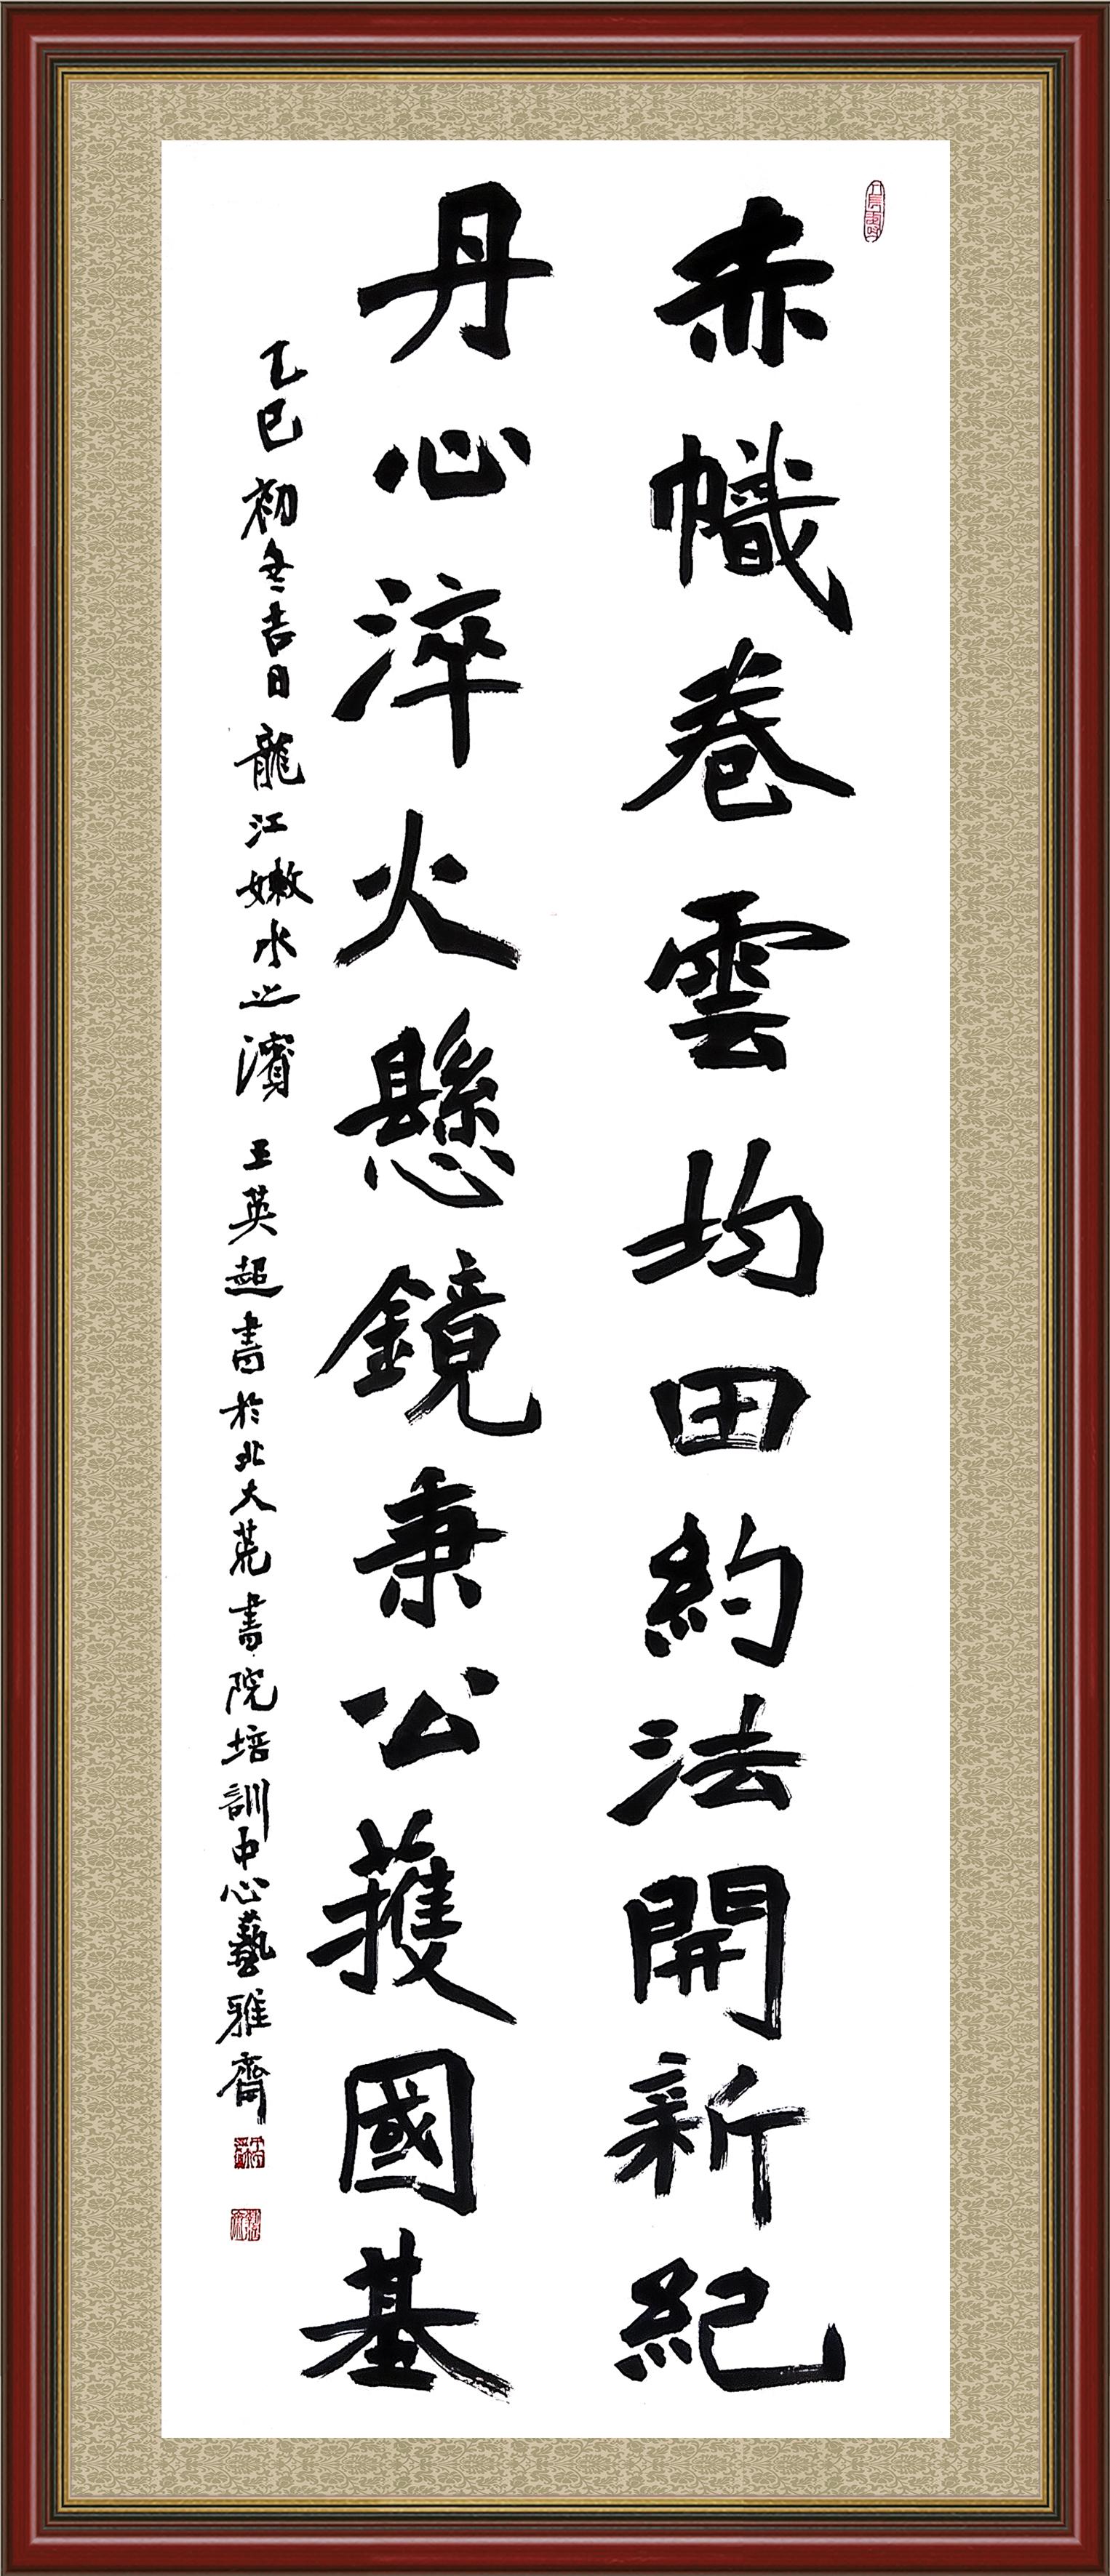 赤幟卷雲均田約法開新紀
丹心淬火懸鏡秉公護國基
乙巳初冬吉日龍江嫩水之濱王英超書於北大荒書院培訓中心藝雅齋